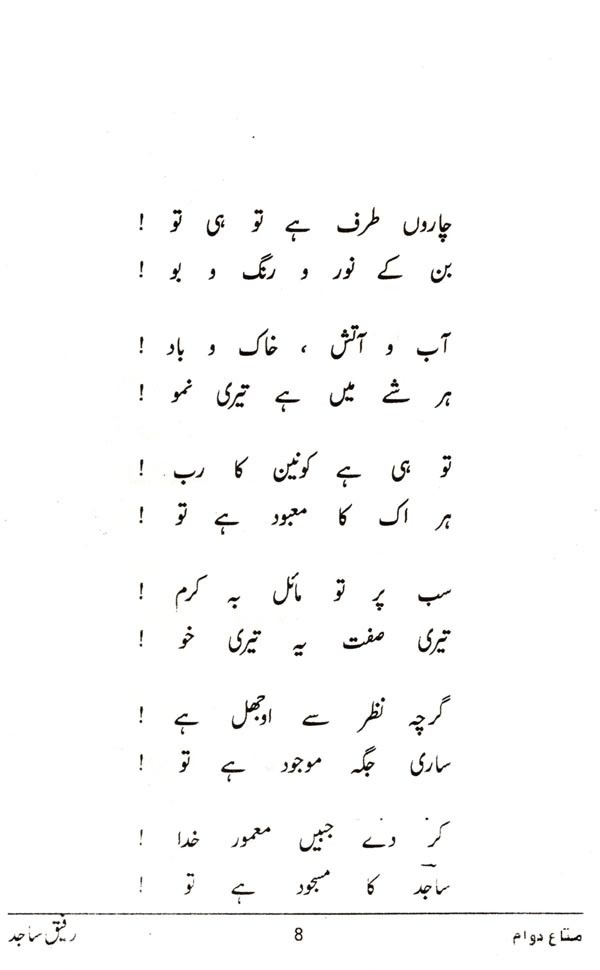 چاروں طرف ہے تو ہی تو !
بن کے نور و رنگ و بو !
آب و آتش ، خاک و باد !
ہر شے میں ہے تیری نمو !
تو ہی ہے کونین کا رب !
ہر اک کا معبود ہے تو !
سب پر تو مائل بہ کرم !
تیری صفت یہ تیری خو !
گرچہ نظر سے اوجھل ہے !
ساری جگہ موجود ہے تو !
کر دے جبیں معمور خدا !
ساجد کا مسجود ہے تو !
متاع دوام 8 رفیق ساجد